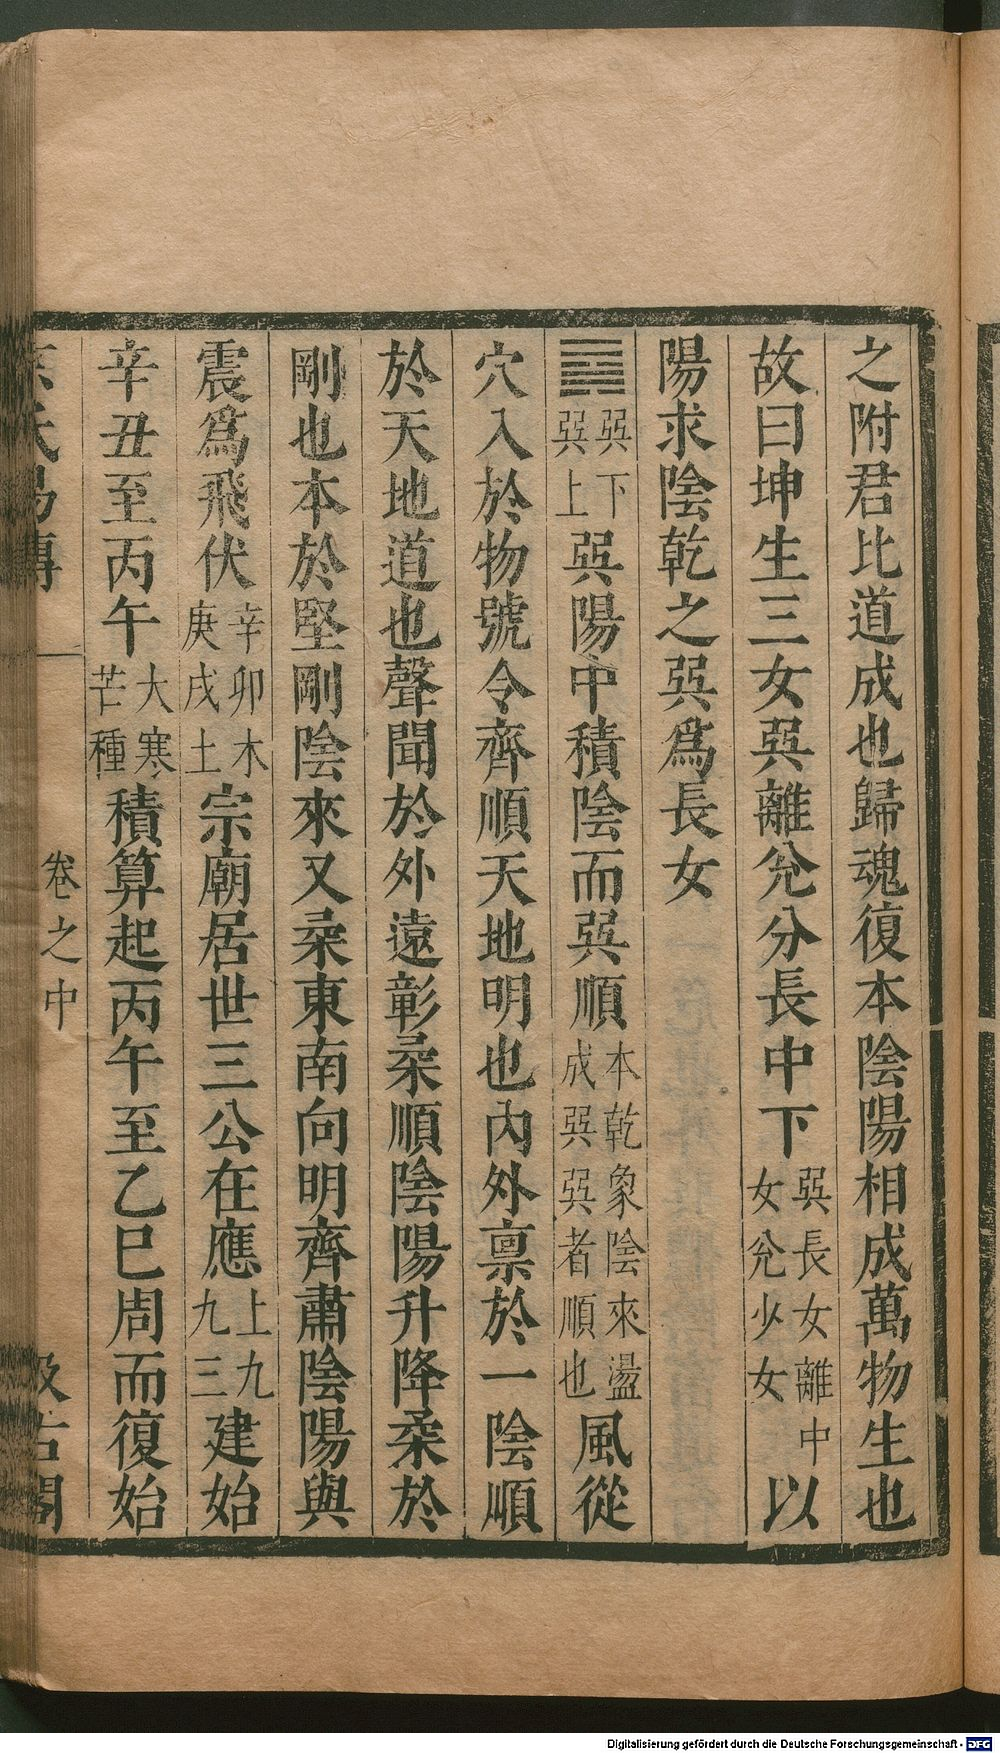 之附君比道成也歸魂復本陰陽相成萬物生也
故曰坤生三女巽離兊分長中下巽長女離中女兊少女以
陽求陰乾之巽爲長女
䷸巽下巽上巽陽中積陰而巽順本乾象陰來盪成巽巽者順也風從
穴入於物號令齊順天地明也內外禀於一陰順
於天地道也聲聞於外遠彰柔順陰陽升降柔於
剛也本於堅剛陰來又柔東南向明齊肅陰陽與
震爲飛伏辛卯木庚戌土宗廟居世三公在應上九九三建始
辛丑至丙午大寒芒種積算起丙午至乙巳周而復始
京氏易傳 卷之中 汲古閣
Digitalisierung gefördert durch die Deutsche Forschungsgemeinschaft - DFG